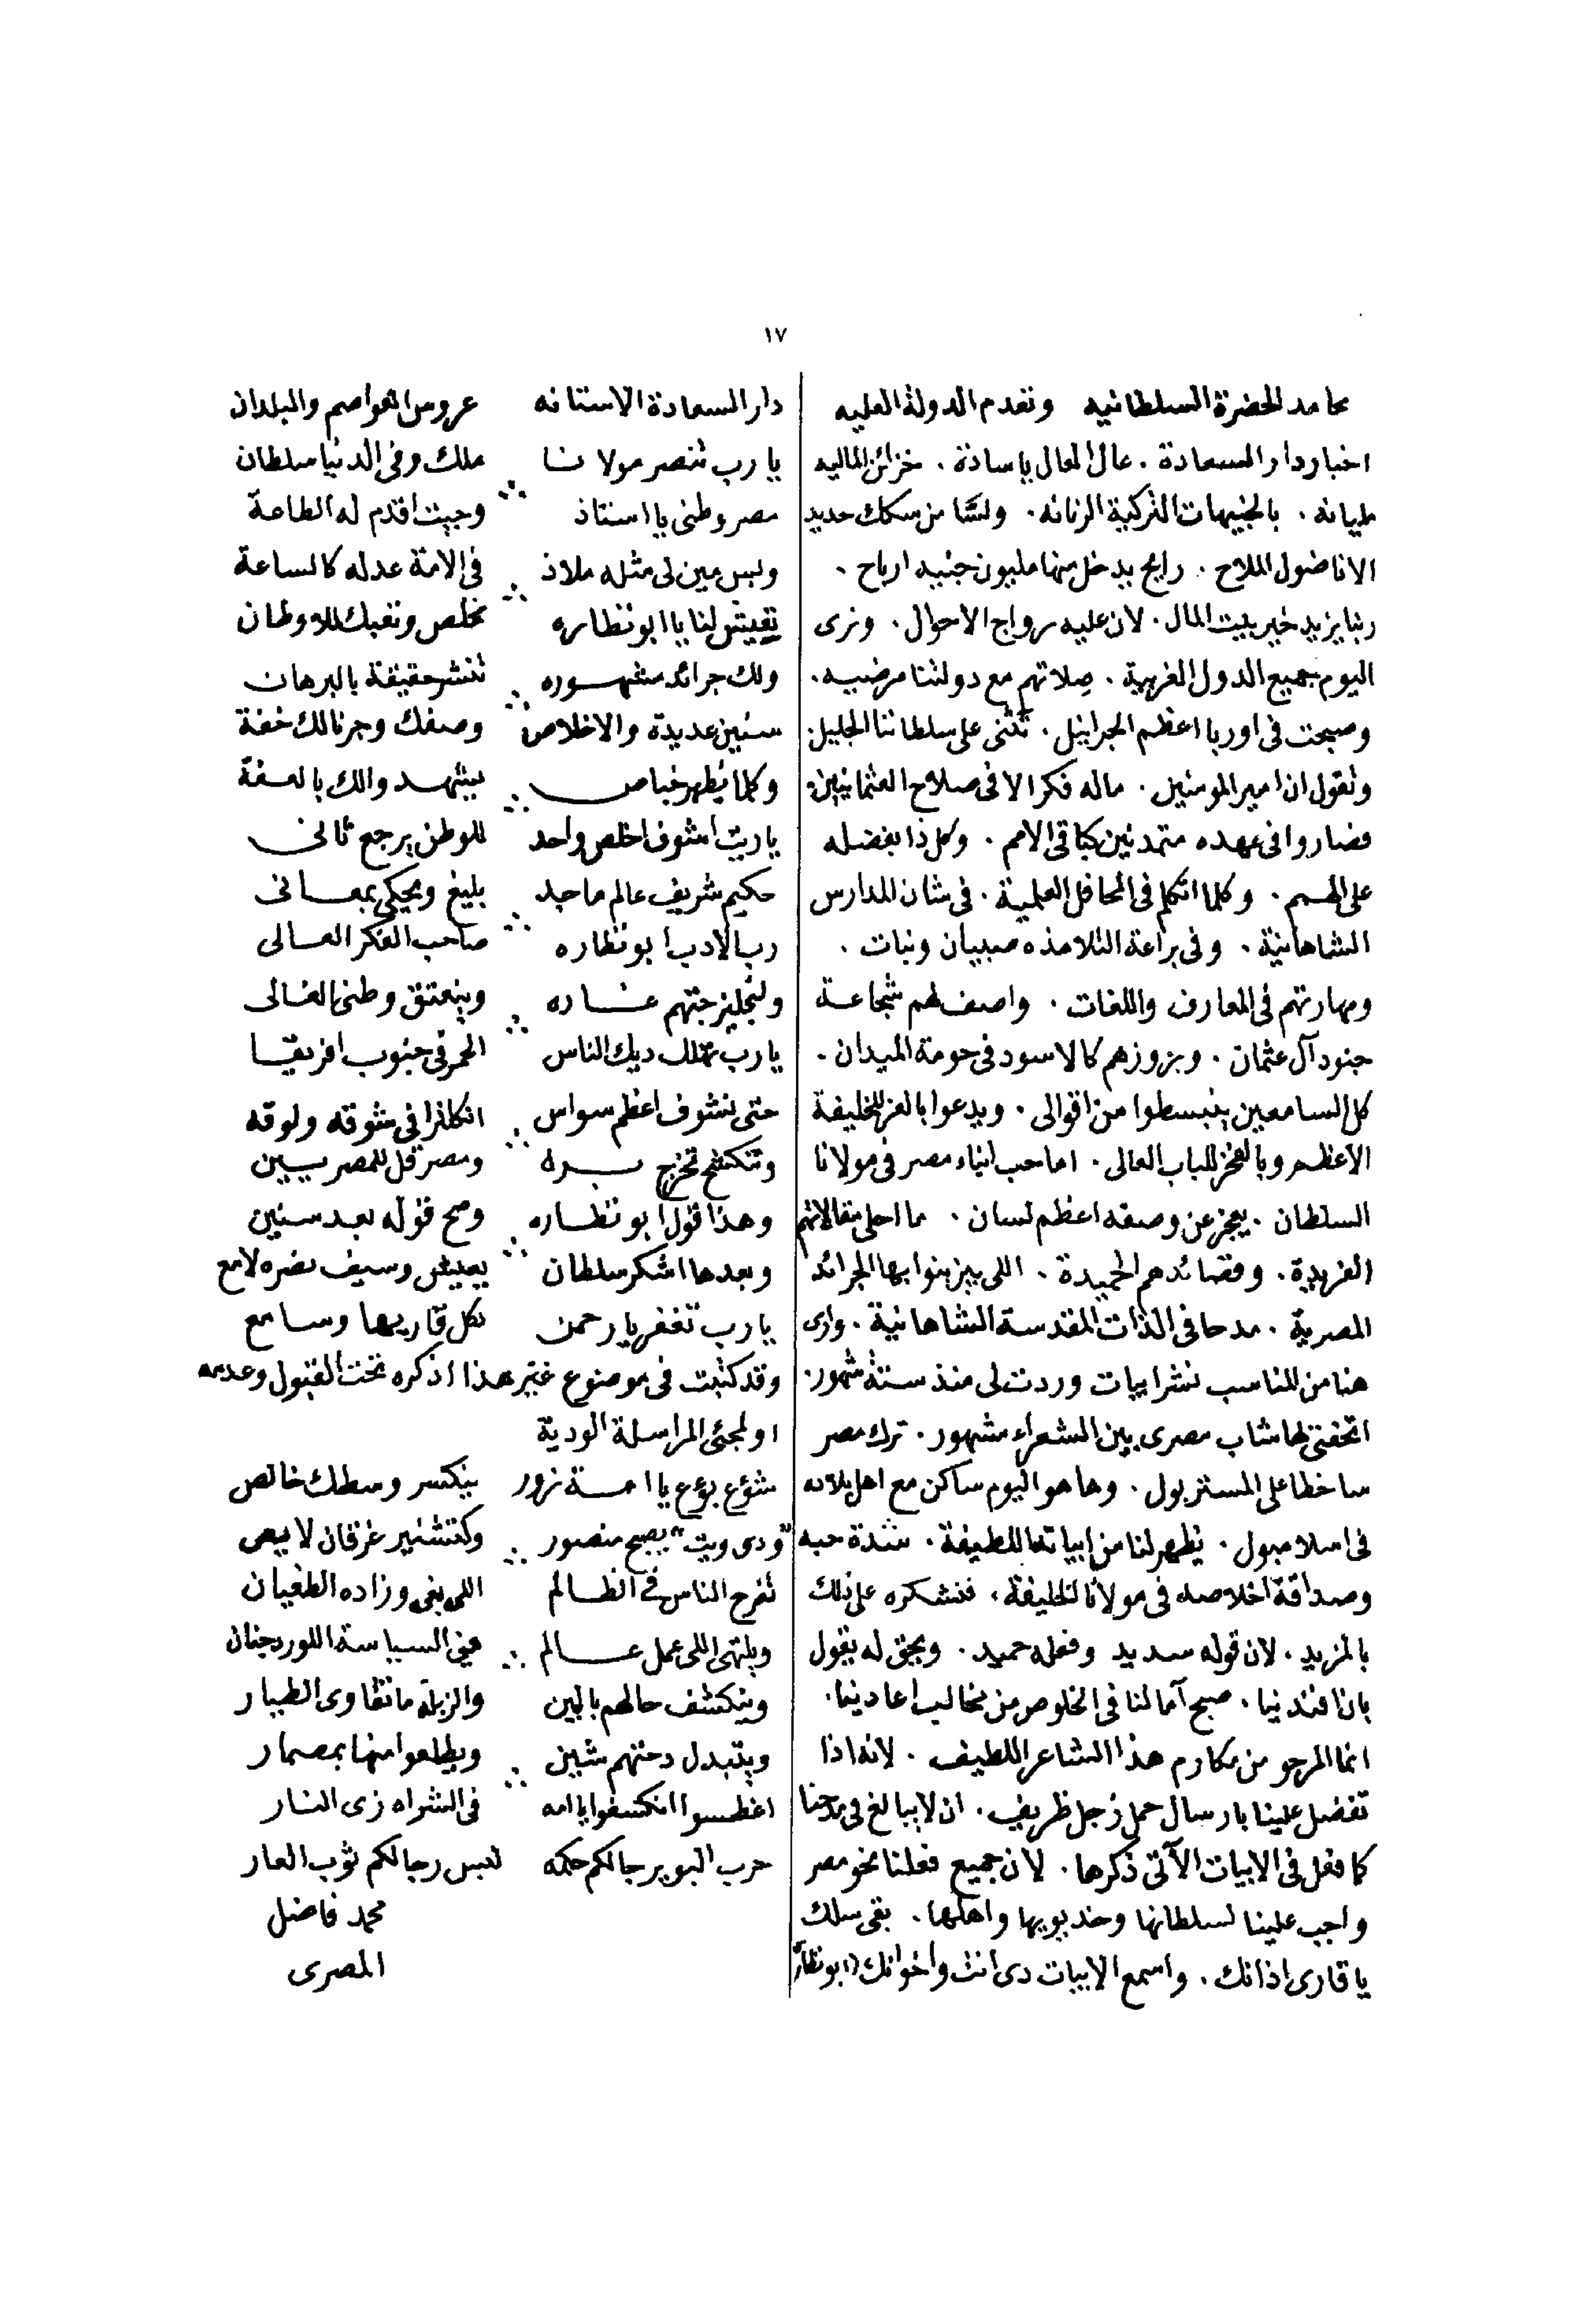 ١٧
محامد الحضرة السلطانيه وتقدم الدولة العليه
اخبار دار السعادة . عال العال ياسادة . خزائن الماليه
مليانه . بالجنيهات التركية الرنانه . ولسّا من سكك حديد
الاناضول الملاح . رايح يدخل منها مليون جنيه ارباح .
ربنا يزيد خير بيت المال . لان عليه رواج الاحوال . ونرى
اليوم جميع الدول الغربية . صلاتهم مع دولتنا مرضيه .
وصبحت فى اوربا اعظم الجرانيل . تثنى على سلطاننا الجليل .
وتقول ان امير المومنين . ماله فكر الا فى صلاح العثمانيين .
فصاروا فى عهده متمدنين كباقى الامم . وكل ذا بفضله
على الهمم . وكلما اتكلم فى المحافل العلمية . فى شان المدارس
الشاهانية . وفى براعة التلامذه صبيان وبنات .
ومهارتهم فى المعارف واللغات . واصف لهم شجاعة
جنود آل عثمان . وبروزهم كالاسود فى حومة الميدان .
كل السامعين ينبسطوا من اقوالى . ويدعوا بالعز للخليفة
الاعظم وبالفخر للباب العالى . اما حب ابناء مصر فى مولانا
السلطان . يعجز عن وصفه اعظم لسان . ما احلى مقالاتهم
الفريدة . وقصائدهم الحميدة . اللى بيزينوا بها الجرائد
المصرية . مدحا فى الذات المقدسة الشاهانية . وارى
هنا من المناسب نشر ابيات وردت لى منذ ستة شهور .
اتحفنى بها شاب مصرى بين الشعراء مشهور . ترك مصر
ساخطا على المستر بول . وها هو اليوم ساكن مع اهل بلاده
فى اسلامبول . يظهر لنا من ابياته اللطيفة . شدة حبه
وصداقة اخلاصه فى مولانا الخليفة . فنشكره على ذلك
بالمزيد . لان قوله سديد وفعله حميد . ويحق له يقول
بان افندينا . صبح آمالنا فى الخلوص من مخالب اعادينا .
انما المرجو من مكارم هذا الشاعر اللطيف . لانه اذا
تفضل علينا بارسال حمل زجل ظريف . ان لا يبالغ فى مدحنا
كما فعل فى الابيات الآتى ذكرها . لان جميع فعلنا نحو مصر
واجب علينا لسلطانها وخديويها واهلها . بقى سلك
يا قارى اذانك . واسمع الابيات دى انت واخوانك (ابو نظارة
دار السعادة الاستانه عروس العواصم والبلدان
يا رب تنصر مولانا ملك وفى الدنيا سلطان
مصر وطنى يا استاذ وجيت اقدم له الطاعة
وليس مين لى مثله ملاذ فى الامة عدله كالساعة
تعيش لنا يا ابو نظاره تخلص وتعبك للاوطان
ولك جرائد مشهوره تنشر حقيقة بالبرهان
سنين عديدة والاخلاص وصفك وجرنالك خفة
وكلما يظهر خباص يشهد والك بالعفة
يا ريت اشوف اخلص واحد للوطن يرجع ثانى
حكيم شريف عالم ماجد بليغ ويحكى بمعانى
رب الادب ابو نظاره صاحب الفكر العالى
ولنجليز جتهم غاره وينعتق وطنى الغالى
يا رب تهلك ديك الناس الحمر فى جنوب افريقيا
حتى نشوف اعظم سواس انكلترا فى شوقه ولوقه
وتنكشح تخرج بره ومصر قل للمصريين
وهذا قول ابو نظاره وصح قوله بعد سنين
وبعدها اشكر سلطان يعيش وسيف نصره لامع
يا رب تغفر يا رحمن لكل قاريها وسامع
وقد كتبت فى موضوع غير هذا اذكره تحت القبول وعدمه
او لمجئ المراسلة الودية
شؤع بؤع يا امة نزور ينكسر وسطك خالص
"ودى ويت" يصبح منصور وكتشنير غرقان لايص
تفرح الناس فى الظالم اللى بغى وزاده الطغيان
ويلتهى اللى عمل عالم فى السياسة اللورد جنان
وينكشف حالهم بالبين والزبلة ما تقاوى الطيار
ويتبدل دحتهم شين ويطلعوا منها بمصمار
اغطسوا انكسفوا يا امه فى الشراه زى النار
حرب البوير رجالكم حكمه لبس رجالكم ثوب العار
محمد فاضل
المصرى